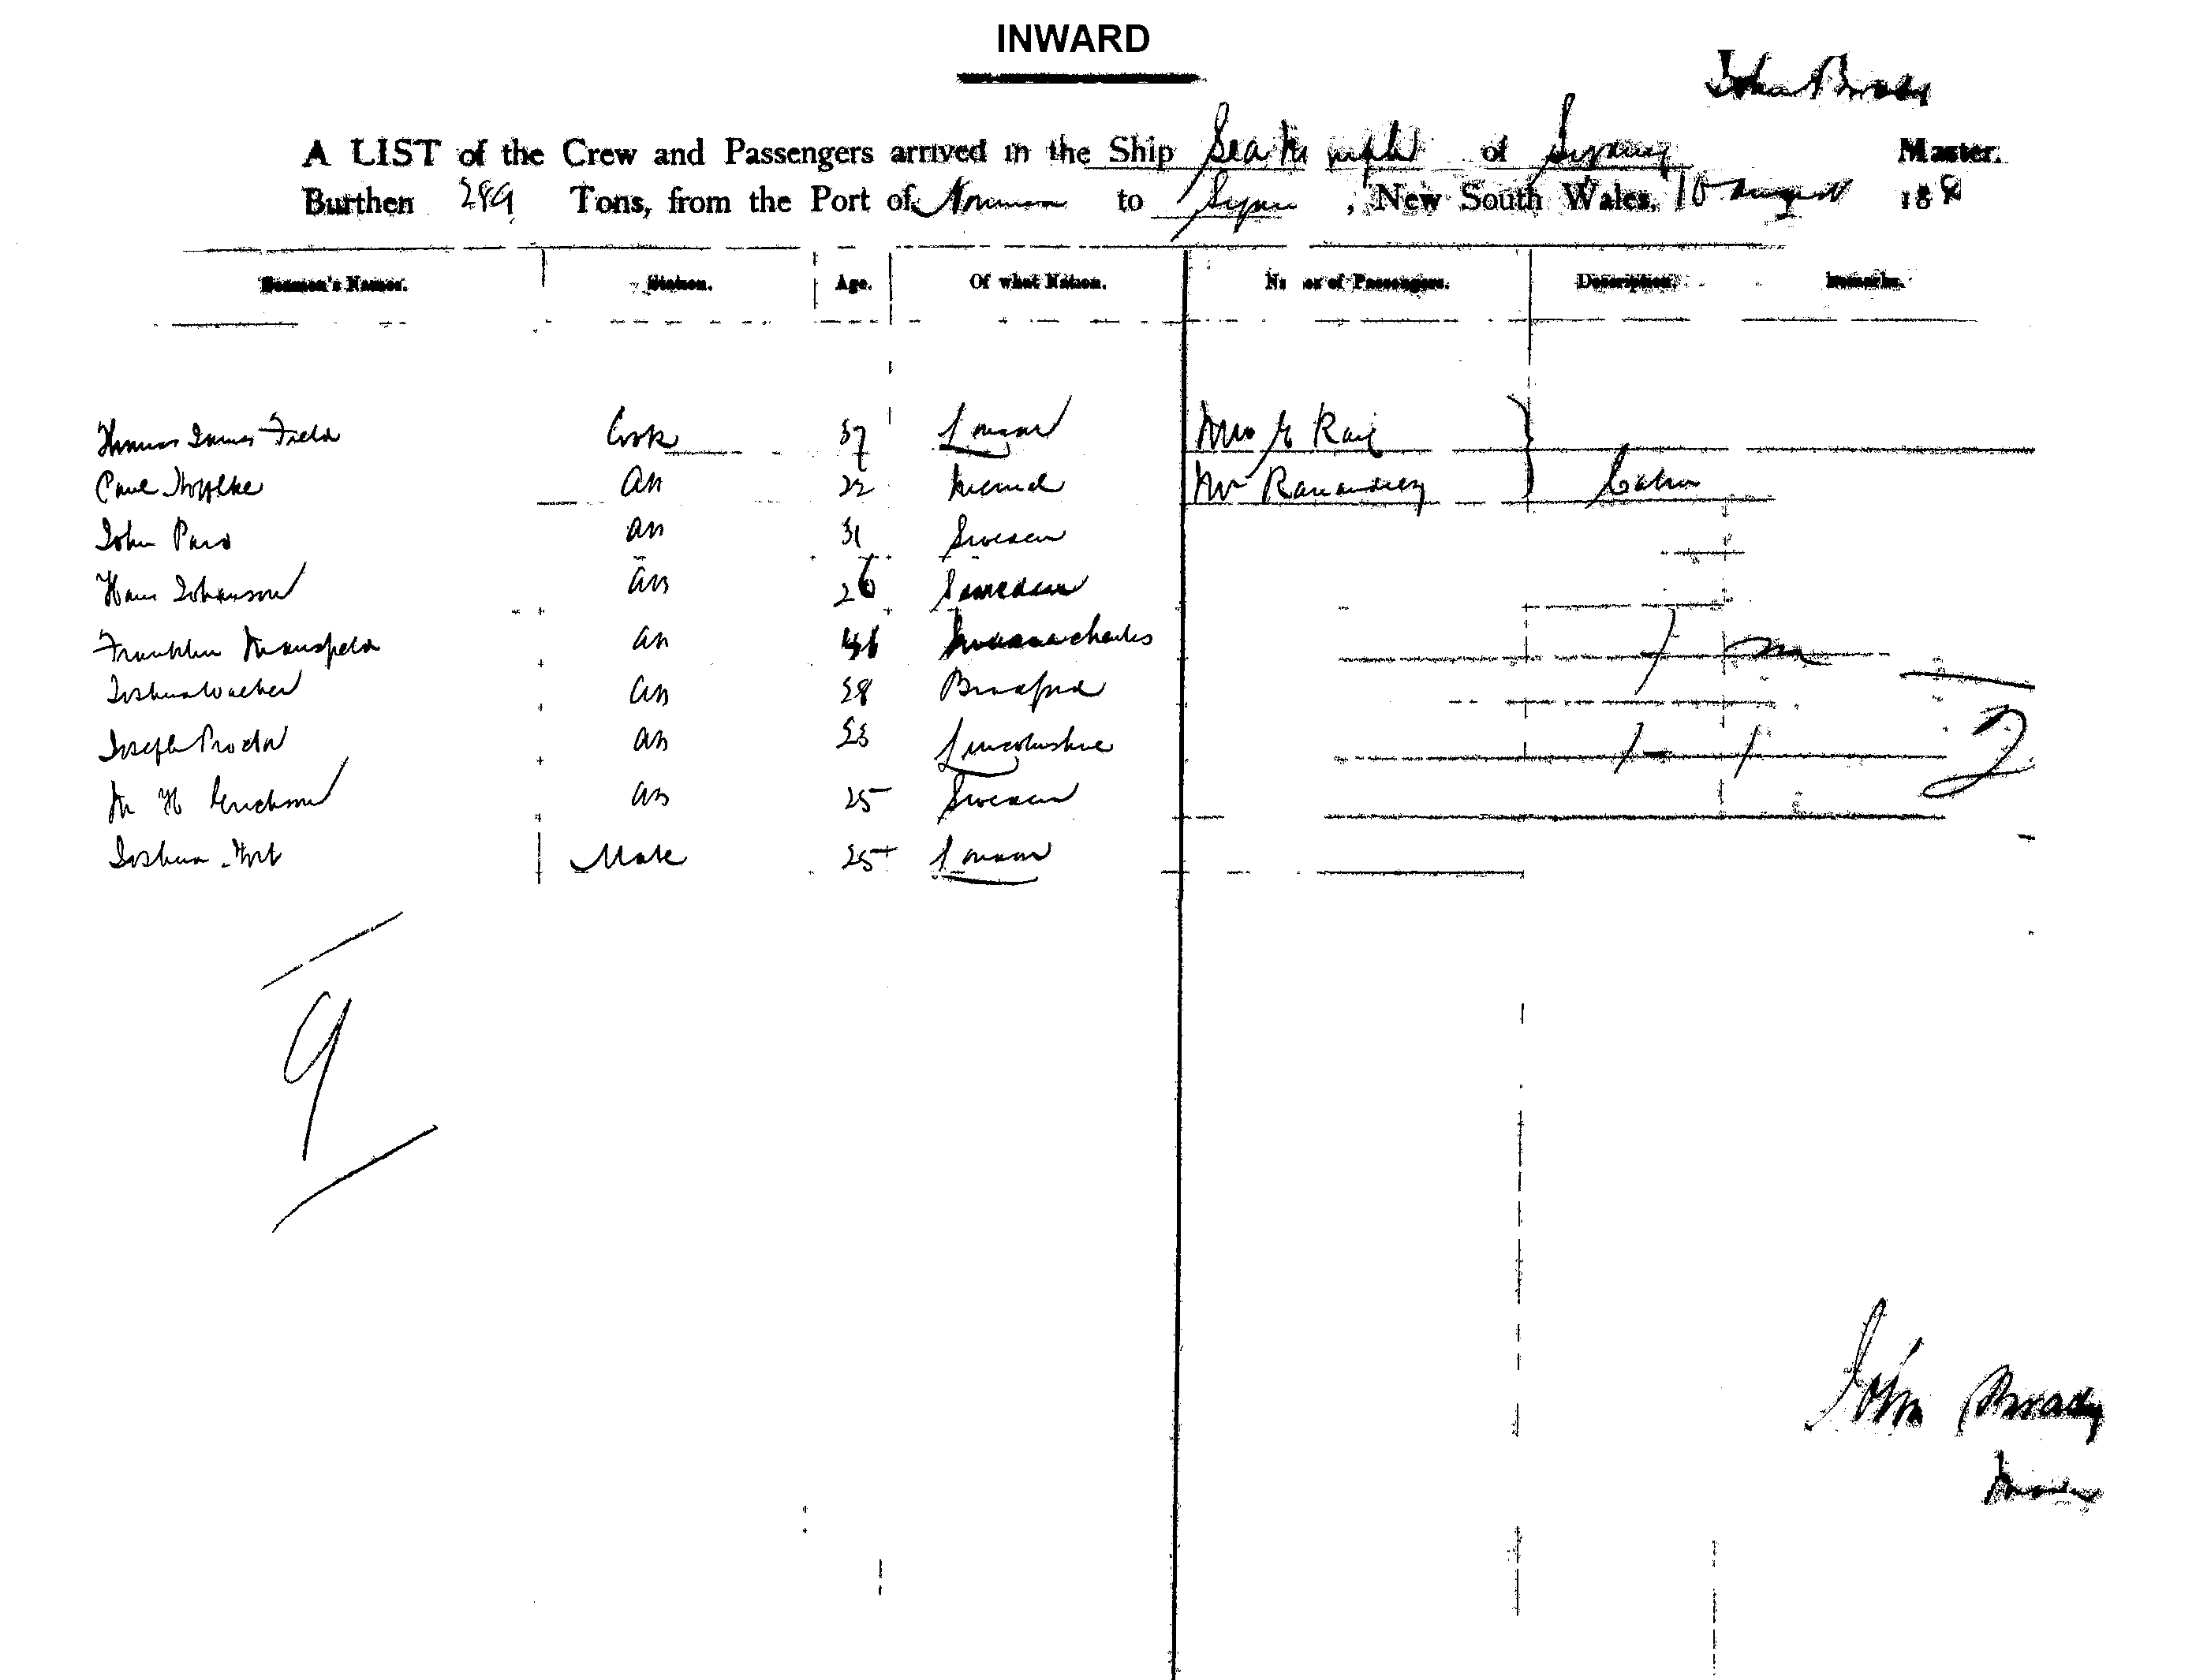 INWARD
John Brady
A LIST of the Crew and Passengers arrived in the Ship Sea Nymph of Sydney Master.
Burthen 289 Tons, from the Port of Noumea to Sydney, New South Wales, 10 August 188
Seamen's Names. Station. Age. Of what Nation. Names of Passengers. Description. Remarks.
Thomas James Field Cook 37 London Mrs G Rail
Paul AB 22 Mr Cabin
John AB 31 Sweden
Hans Johanson AB 26 Sweden
Franklin Mansfield AB 46
Joshua Walker AB 28 Bradford
Joseph Proctor AB 23 Lincolnshire 1 - 1 2
M H Erickson AB 25 Sweden
Joshua Mate 25 London
9
John Brady
Master